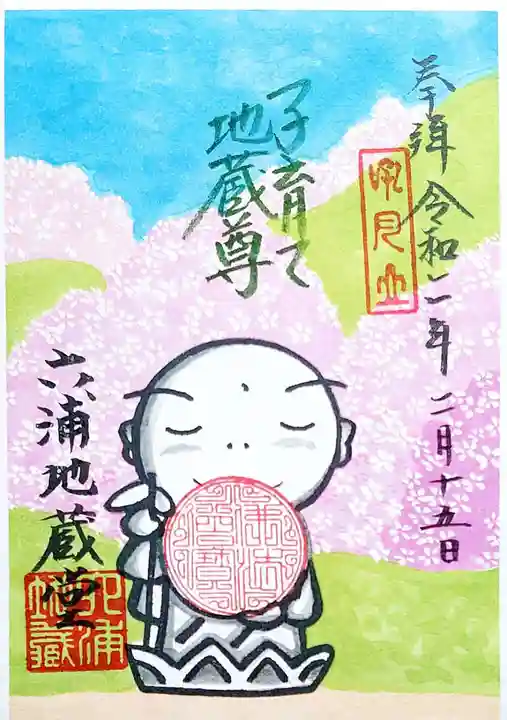 奉拝 令和二年 二月十五日
子育て
地蔵尊
六浦地蔵堂
佛法僧寶
六浦
地蔵